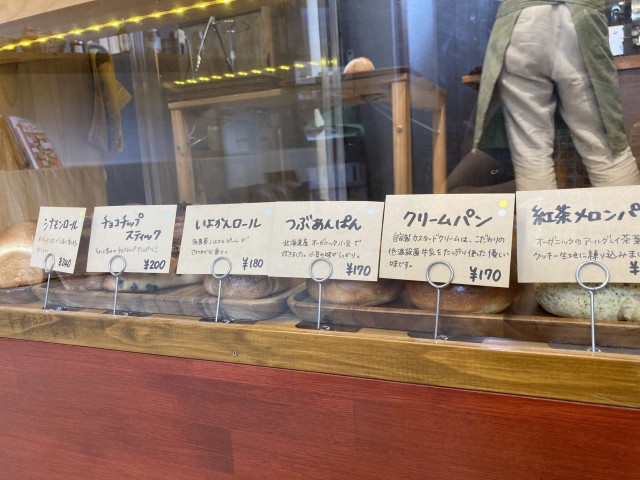 シナモンロール
¥240
チョコチップ
スティック
¥200
いよかんロール
さわやかな香り。
¥180
つぶあんぱん
北海道産オーガニック小豆で
炊きました。小豆の味がしっかり。
¥170
クリームパン
自家製カスタードクリームは、こだわりの
低温殺菌牛乳をたっぷり使った優しい
味です。
¥170
紅茶メロンパ
オーガニックのアールグレイ茶葉
クッキー生地に練り込みま
¥